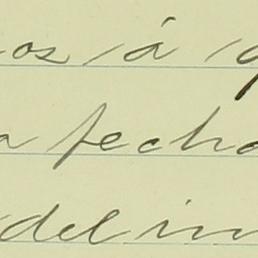 os á
a fecha
del in